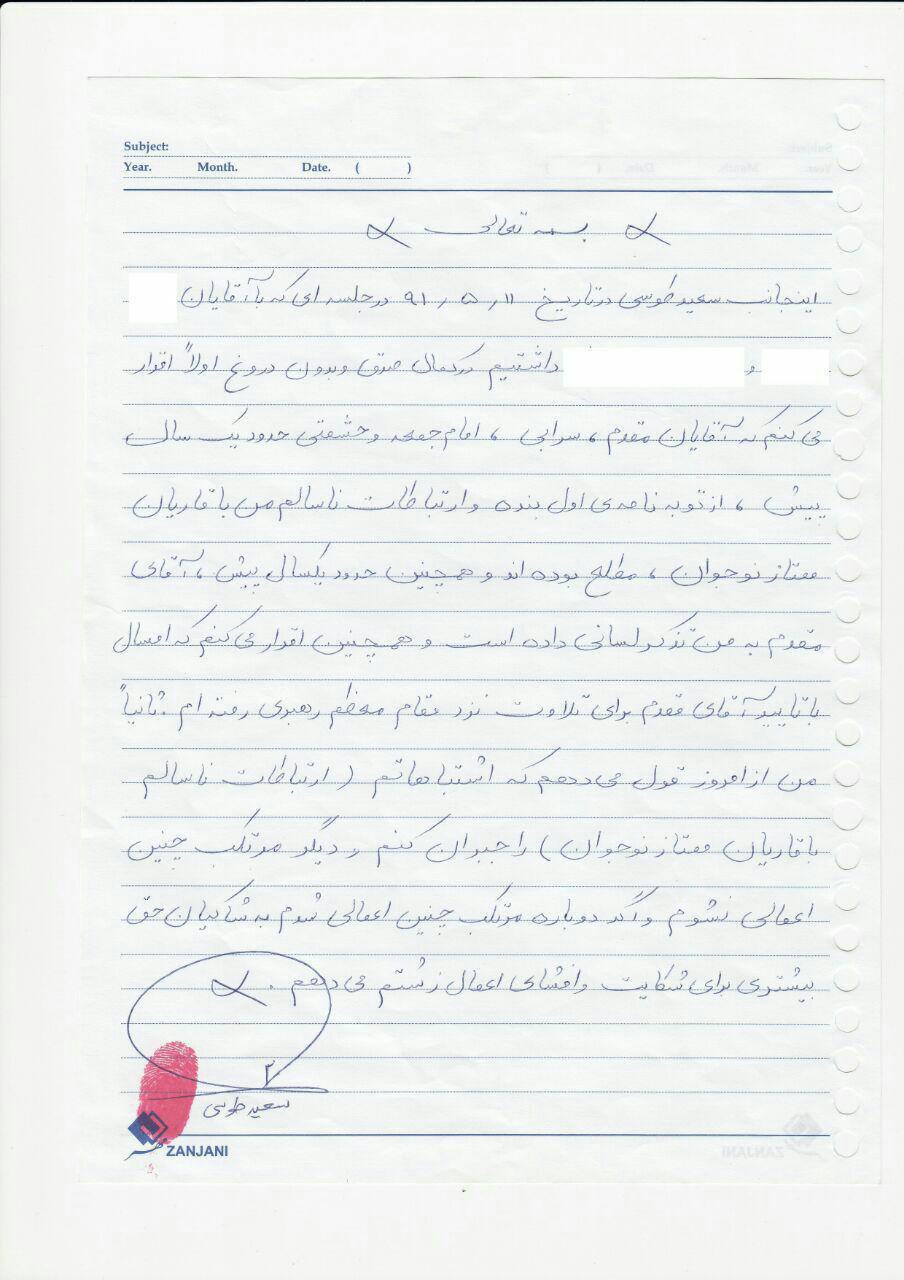 Subject:
Year. Month. Date. ( )
بسمه تعالی
اینجانب سعید طوسی در تاریخ ۹۱/۵/۱۱ در جلسه ای که با آقایان
و داشتیم در کمال صدق و بدون دروغ اولاً اقرار
می کنم که آقایان مقدم، سرابی، امام جمعه و حشمتی حدود یک سال
پیش، از توبه نامه ی اول بنده و ارتباطات ناسالم من با قاریان
ممتاز نوجوان، مطلع بوده اند و همچنین حدود یکسال پیش، آقای
مقدم به من تذکر لسانی داده است و همچنین اقرار می کنم که امسال
با تایید آقای مقدم برای تلاوت نزد مقام معظم رهبری رفته ام. ثانیاً
من از امروز قول می دهم که اشتباهاتم (ارتباطات ناسالم
با قاریان ممتاز نوجوان) را جبران کنم و دیگر مرتکب چنین
اعمالی نشوم و اگر دوباره مرتکب چنین اعمالی شدم به شاکیان حق
بیشتری برای شکایت و افشای اعمال زشتم می دهم.
سعید طوسی
ZANJANI